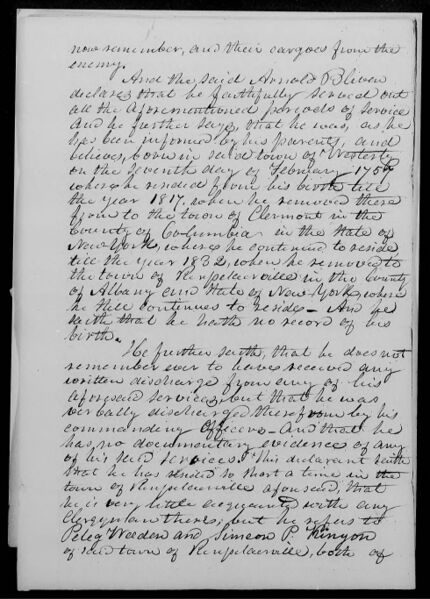 now remember, and their cargoes from the
enemy.
And the said Arnold Bliven
declares that he faithfully served out
all the aforementioned periods of service
And he further says, that he was, as he
has been informed by his parents, and
believes, born in said town of Westerly
on the seventh day of February 1757
where he resided from his birth till
the year 1817, when he removed there
from to the town of Clermont in the
County of Columbia in the State of
New York, where he continued to reside
till the year 1832, when he removed to
the town of Renselaerville in the County
of Albany and State of New York, where
he still continues to reside - And he
saith that he hath no record of his
birth.
He further saith, that he does not
remember ever to have received any
written discharge from any of his
aforesaid services, but that he was
verbally discharged therefrom by his
commanding Officers - And that he
has no documentary evidence of any
of his said services. This declarant saith
that he has resided so short a time in the
town of Renselaerville aforesaid, that
he is very little acquainted with any
Clergyman there; but he refers to
Peleg Weeden and Simeon P. Kinyon
of said town of Renselaerville, both of